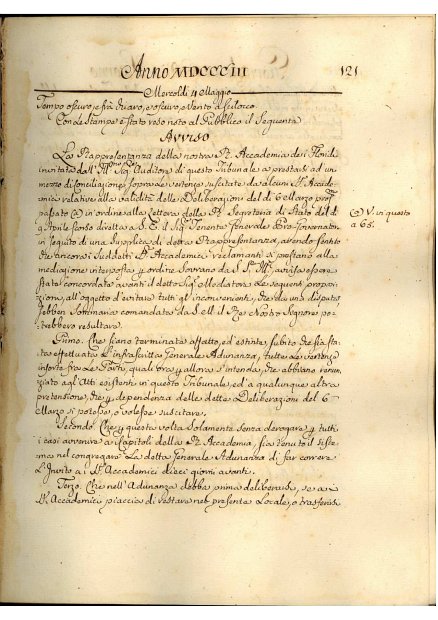 Anno MDCCCIII
121
Mercoldì 4 Maggio
Tempo oscuro, e frà chiaro, e oscuro, e vento a scilocco
Con le Stampe è stato reso noto al Pubblico il Seguente
Avviso
La Rappresentanza della nostra R. Accademia dei Floridi
invitata dall'Ill. Sig. Auditore di questo Tribunale a prestarsi ad un
mezzo di conciliazione sopra le vertenze suscitate da alcuni SS. Accade-
mici relative alla validità delle Deliberazioni del dì 6 Marzo pross
passato (a) in ordine alla Lettera della R. Segreteria di Stato del dì
9 Aprile scorso diretta a S. E. il Sig. Tenente Generale Pro-Governatore
in seguito di una Supplica di detta Rappresentanza, avendo sentito
che ancora i Suddetti SS. Accademici reclamanti si prestano alla
mediazione interposta per ordine Sovrano da S. S. Ill. avvisa essere
stata concordata avanti il detto Sig. Mediatore le Seguenti proposi-
zioni, all'oggetto d'evitare tutti gl'inconvenienti, che da una disputa,
sebben Sommaria comandata da S. M. il Re Nostro Signore po-
trebbero resultare.
Primo. Che siano terminate affatto, ed estinte, subito che sia sta-
ta effettuata l'infrascritta Generale Adunanza, tutte le vertenze
insorte fra le Parti, quali ora per allora s'intenda, che abbiano renun-
ziato agl'Atti esistenti in questo Tribunale, ed a qualunque altra
pretensione, che per dipendenza delle dette Deliberazioni del 6
Marzo si potesse, o volesse suscitare.
Secondo. Che per questa volta solamente senza derogare per tutti
i casi avvenire a Capitoli della R. Accademia, sia tenuto il siste-
ma nel congregare la detta Generale Adunanza di far correre
l'Invito a i SS. Accademici dieci giorni avanti.
Terzo. Che nell'Adunanza debba prima deliberarsi, se a
SS. Accademici piaccia di restare nel presente Locale, o trasferirsi
(a) V. in questo
a 65.